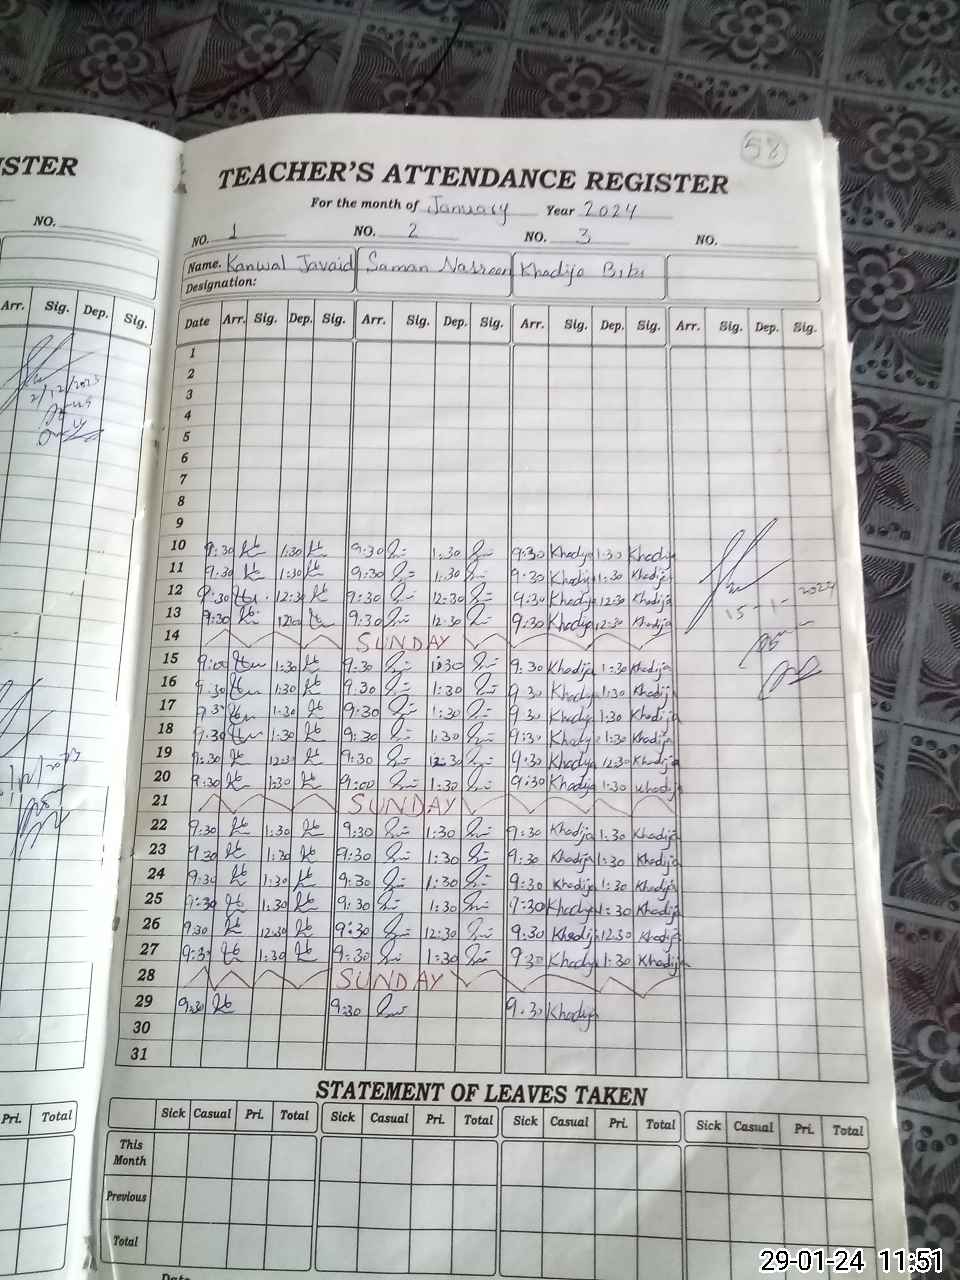 58
ISTER
TEACHER'S ATTENDANCE REGISTER
For the month of January Year 2024
NO.
NO. 1 NO. 2 NO. 3 NO.
Name. Kanwal Javaid Saman Nasreen Khadija Bibi
Designation:
Arr. Sig. Dep. Sig.
Date Arr. Sig. Dep. Sig. Arr. Sig. Dep. Sig. Arr. Sig. Dep. Sig. Arr. Sig. Dep. Sig.
1
2
3
4
5
6
7
8
9
10 9:30 1:30 9:30 1:30 9:30 Khadija 1:30 Khadija
11 9:30 1:30 9:30 1:30 9:30 Khadija 1:30 Khadija
12 9:30 12:30 9:30 12:30 9:30 Khadija 12:30 Khadija
13 9:30 9:30 12:30 9:30 Khadija 12:30 Khadija
15-1-2024
14 SUNDAY
15 1:30 9:30 1:30 9:30 Khadija 1:30 Khadija
16 9:30 1:30 9:30 1:30 9:30 Khadija 1:30 Khadija
17 9:30 1:30 9:30 1:30 9:30 Khadija 1:30 Khadija
18 9:30 1:30 9:30 1:30 9:30 Khadija 1:30 Khadija
19 9:30 12:30 9:30 12:30 9:30 Khadija 12:30 Khadija
20 9:30 1:30 9:00 1:30 9:30 Khadija 1:30 Khadija
21 SUNDAY
22 9:30 1:30 9:30 1:30 9:30 Khadija 1:30 Khadija
23 9:30 1:30 9:30 1:30 9:30 Khadija 1:30 Khadija
24 9:30 1:30 9:30 1:30 9:30 Khadija 1:30 Khadija
25 9:30 1:30 9:30 1:30 9:30 Khadija 1:30 Khadija
26 9:30 12:30 9:30 12:30 9:30 Khadija 12:30 Khadija
27 9:30 1:30 9:30 1:30 9:30 Khadija 1:30 Khadija
28 SUNDAY
29 9:30 9:30 9:30 Khadija
30
31
STATEMENT OF LEAVES TAKEN
Pri. Total
Sick Casual Pri. Total Sick Casual Pri. Total Sick Casual Pri. Total Sick Casual Pri. Total
This
Month
Previous
Total
29-01-24 11:51